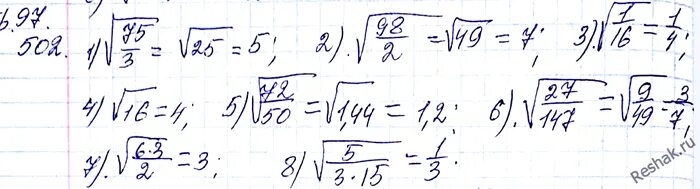 б.97.
502. 1) √(75/3) = √25 = 5; 2). √(98/2) = √49 = 7; 3). √(1/16) = 1/4;
4) √16 = 4; 5) √(72/50) = √1,44 = 1,2; 6). √(27/147) = √(9/49) = 3/7;
7). √(6·3/2) = 3; 8) √(5/(3·15)) = 1/3.
Reshak.ru